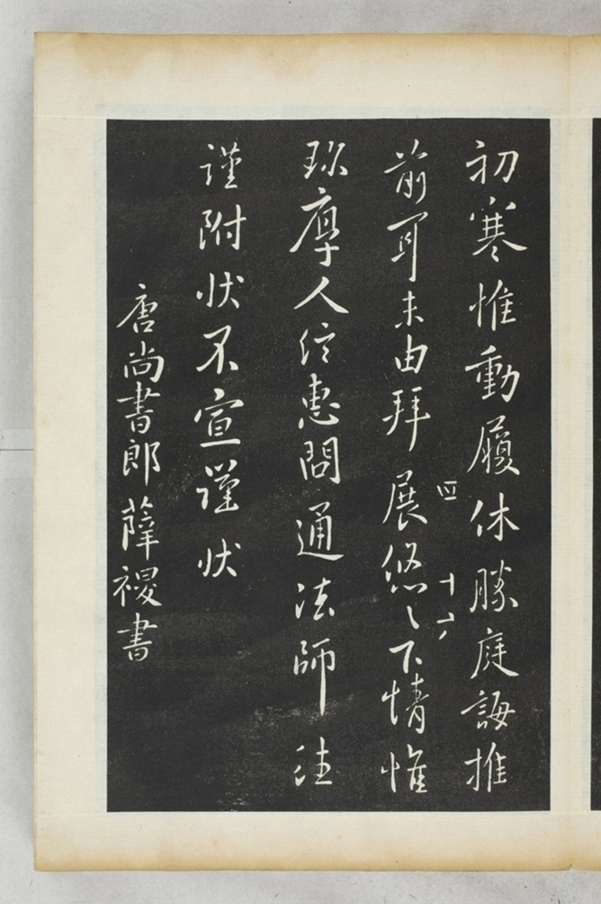 初寒惟動履休勝庭誨推
前耳未由拜展悠〻下情惟
珎厚人信惠問通法師往
謹附狀不宣謹狀
唐尚書郎薛稷書
四 十六